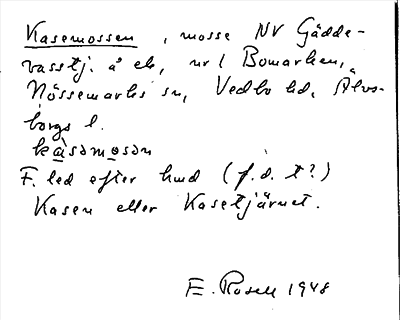 Kasemossen, mosse NV Gädde-
vasstj. å ek, nr 1 Bomarken,
Nössemarks sn, Vedbo hd, Älvs-
borgs l.
kàsəmosən
F. led efter hmd (f.d. t?)
Kasen eller Kasetjärnet.
E. Rosell 1948